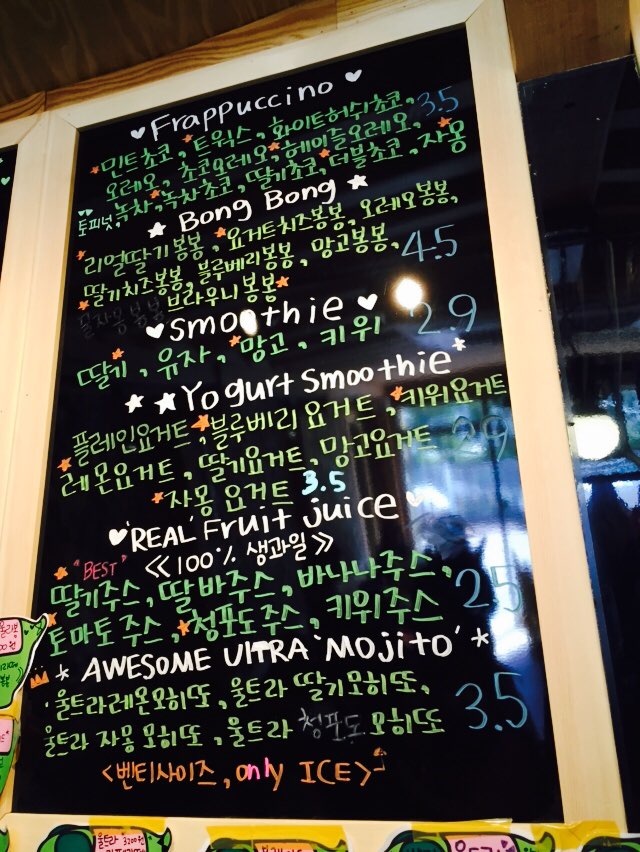 ♥Frappuccino♥
민트초코, 트윅스, 화이트허쉬초코, 3.5
오레오, 초코오레오, 헤이즐오레오,
토피넛, 녹차, 녹차초코, 딸기초코, 더블초코, 자몽
★ Bong Bong ★
리얼딸기봉봉, 요거트치즈봉봉, 오레오봉봉,
딸기치즈봉봉, 블루베리봉봉, 망고봉봉, 4.5
꿀자몽봉봉 브라우니봉봉
♥smoothie♥
딸기, 유자, 망고, 키위 2.9
★ ★Yogurt smoothie*
플레인요거트, 블루베리요거트, 키위요거트
레몬요거트, 딸기요거트, 망고요거트 2.9
자몽요거트 3.5
♥'REAL' Fruit juice♥
"BEST" <<100% 생과일>>
딸기주스, 딸바주스, 바나나주스,
토마토주스, 청포도주스, 키위주스 2.5
* AWESOME UlTRA 'MOJITO' *
울트라레몬모히또, 울트라 딸기모히또,
울트라 자몽모히또, 울트라 청포도모히또 3.5
<벤티사이즈, only ICE>
울트라 3200원